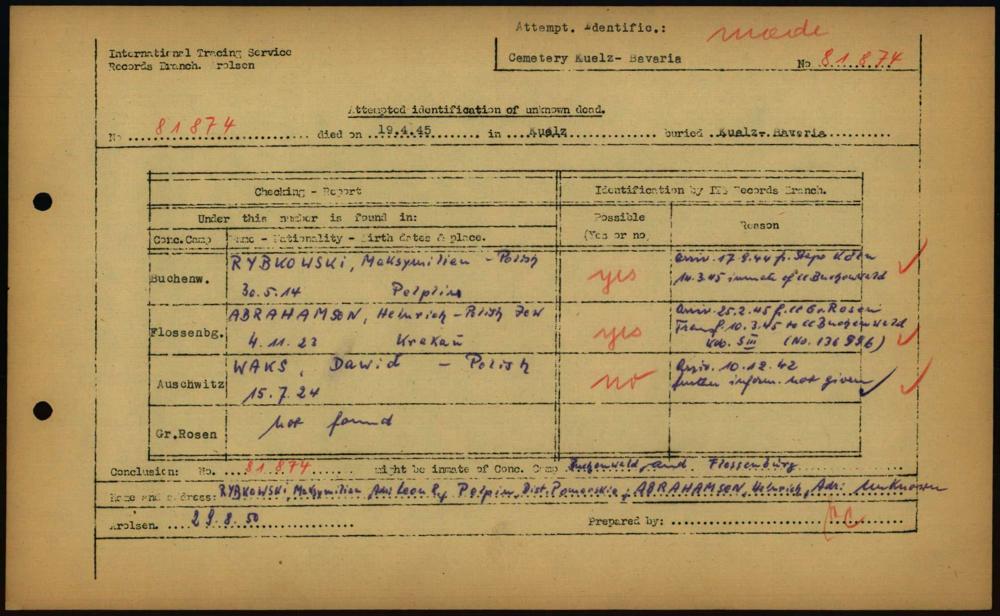 Attempt. Identific.: made
International Tracing Service
Records Branch. Arolsen
Cemetery Kuelz- Bavaria No 81874
Attempted identification of unknown dead.
No 81874 died on 19.4.45 in Kuelz buried Kuelz-Bavaria
Checking - Report Identification by ITS Records Branch.
Under this number is found in: Possible Reason
Conc.Camp Name - Nationality - Birth dates & place. (Yes or no)
RYBKOWSKI, Maksymilian - Polish arriv. 17.9.44 fr. Stapo Köln
Buchenw. yes 14.3.45 inmate of CC Buchenwald
30.5.14 Pelplin
ABRAHAMSON, Heinrich - Polish Jew arriv. 25.2.45 f. CC Gr. Rosen
Flossenbg. yes Transf. 10.3.45 to CC Buchenwald
4.11.23 Krakau Kdo. SIII (No. 136996)
WAKS, Dawid - Polish arriv. 10.12.42
Auschwitz no further inform. not given
15.7.24
Gr.Rosen not found
Conclusion: No. 81874 might be inmate of Conc. Camp Buchenwald, and Flossenbürg
Home and address: RYBKOWSKI, Maksymilian, Leon R., Pelplin, Dist. Pomorskie, ABRAHAMSON, Heinrich, Adr: unknown
Arolsen. 29.8.50 Prepared by: